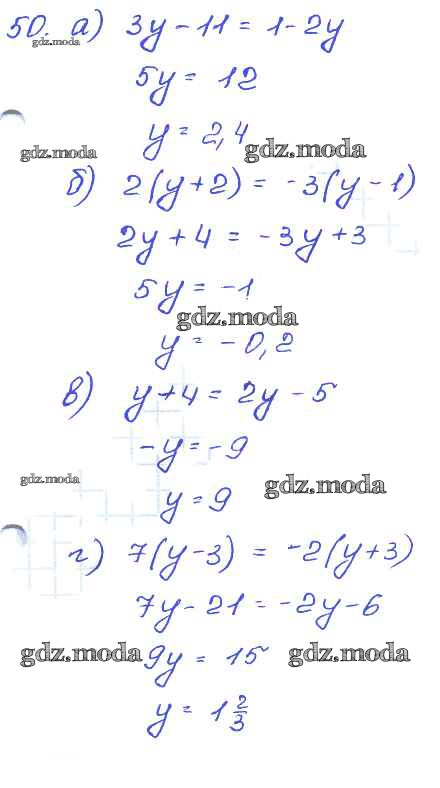 50. а) 3y - 11 = 1 - 2y
gdz.moda
5y = 12
y = 2,4
gdz.moda gdz.moda
б) 2(y + 2) = -3(y - 1)
2y + 4 = -3y + 3
5y = -1
gdz.moda
y = -0,2
в) y + 4 = 2y - 5
-y = -9
gdz.moda gdz.moda
y = 9
г) 7(y - 3) = -2(y + 3)
7y - 21 = -2y - 6
gdz.moda 9y = 15 gdz.moda
y = 1 2/3